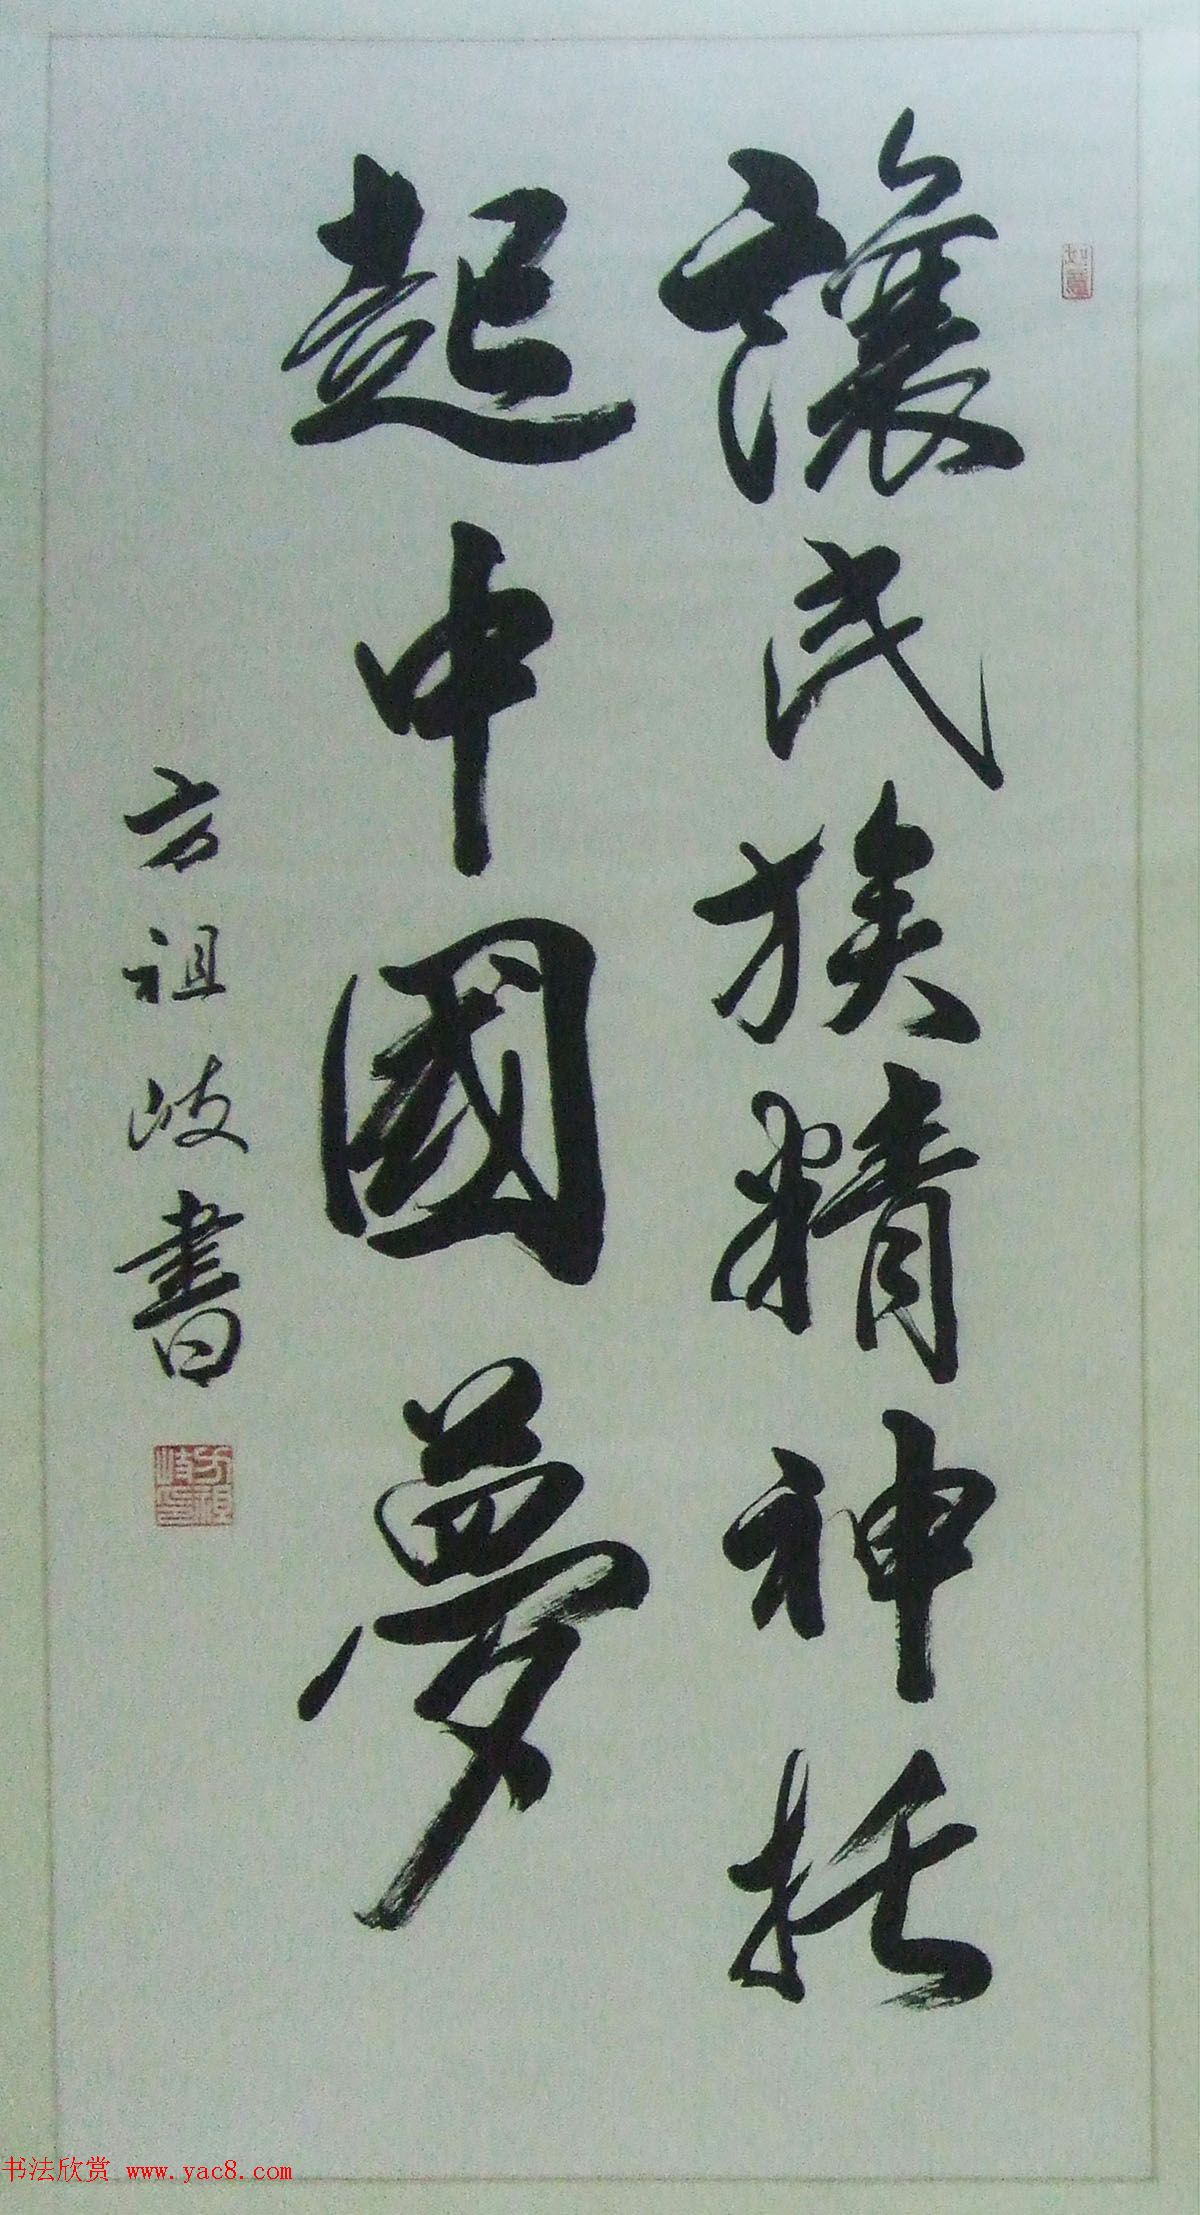 讓民族精神托
起中國夢
方祖岐書
如意
方祖岐印
书法欣赏 www.yac8.com